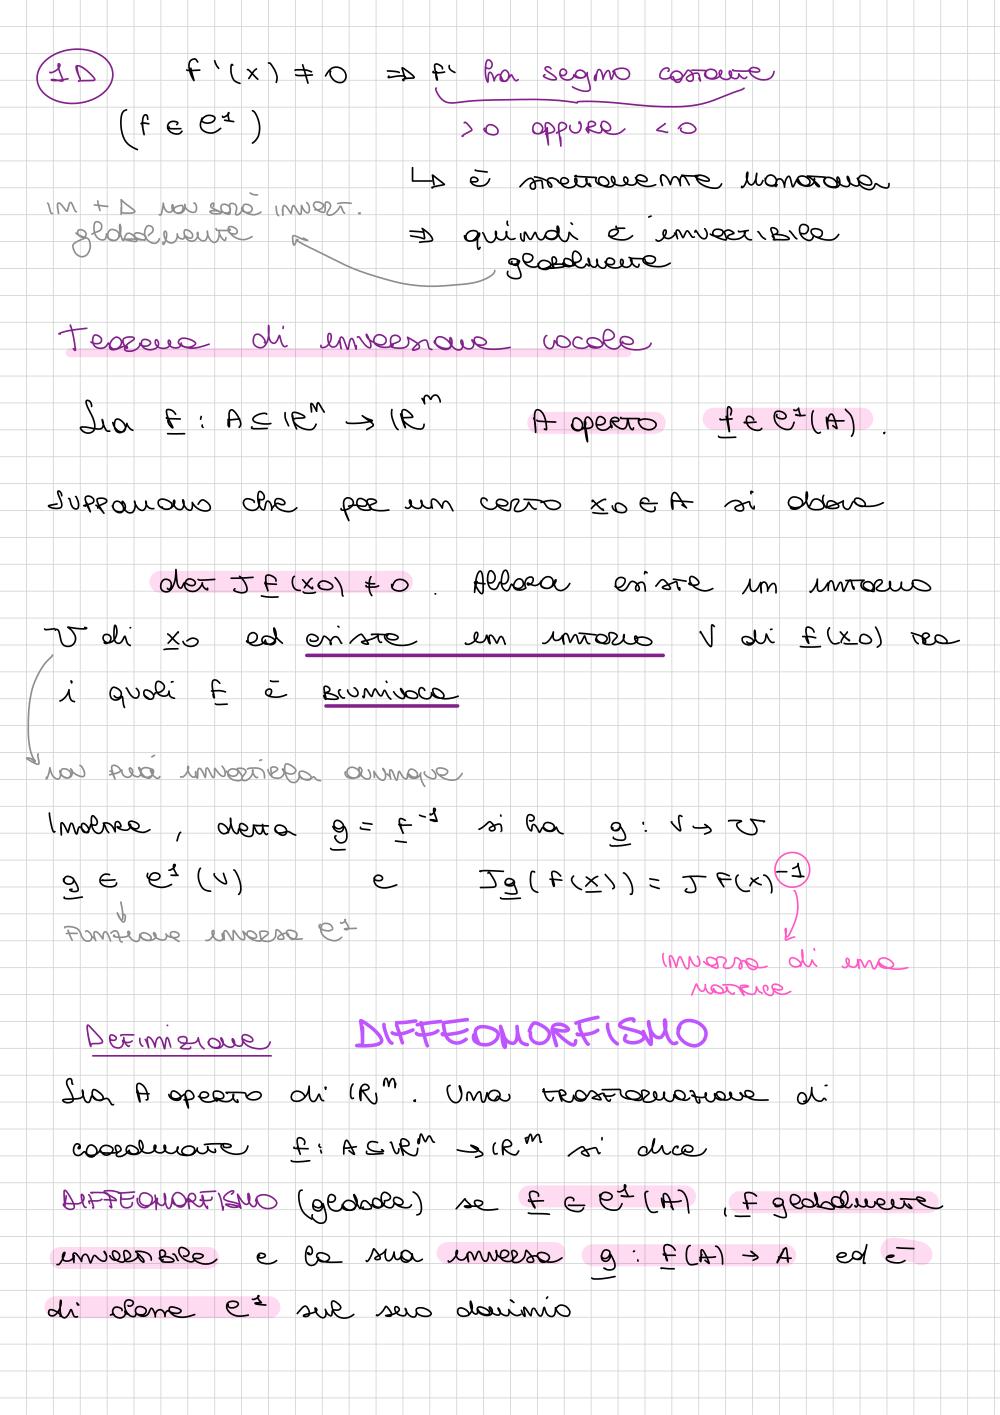 1D f'(x) ≠ 0 ⇒ f' ha segno costante
(f ∈ C¹) >0 oppure <0
↳ è strettamente monotona
in + D non sarà invert.
globalmente
⇒ quindi è invertibile
globalmente
Teorema di inversione locale
Sia f : A ⊆ ℝⁿ → ℝⁿ A aperto f ∈ C¹(A).
Supponiamo che per un certo x0 ∈ A si abbia
det J f(x0) ≠ 0. Allora esiste un intorno
U di x0 ed esiste un intorno V di f(x0) tra
i quali f è biunivoca
non può invertirla ovunque
Inoltre, detta g = f⁻¹ si ha g : V → U
g ∈ C¹(V) e Jg(f(x)) = J f(x)⁻¹
funzione inversa C¹
inversa di una
matrice
Definizione DIFFEOMORFISMO
Sia A aperto di ℝⁿ. Una trasformazione di
coordinate f : A ⊆ ℝⁿ → ℝⁿ si dice
DIFFEOMORFISMO (globale) se f ∈ C¹(A), f globalmente
invertibile e la sua inversa g : f(A) → A ed è
di classe C¹ sul suo dominio